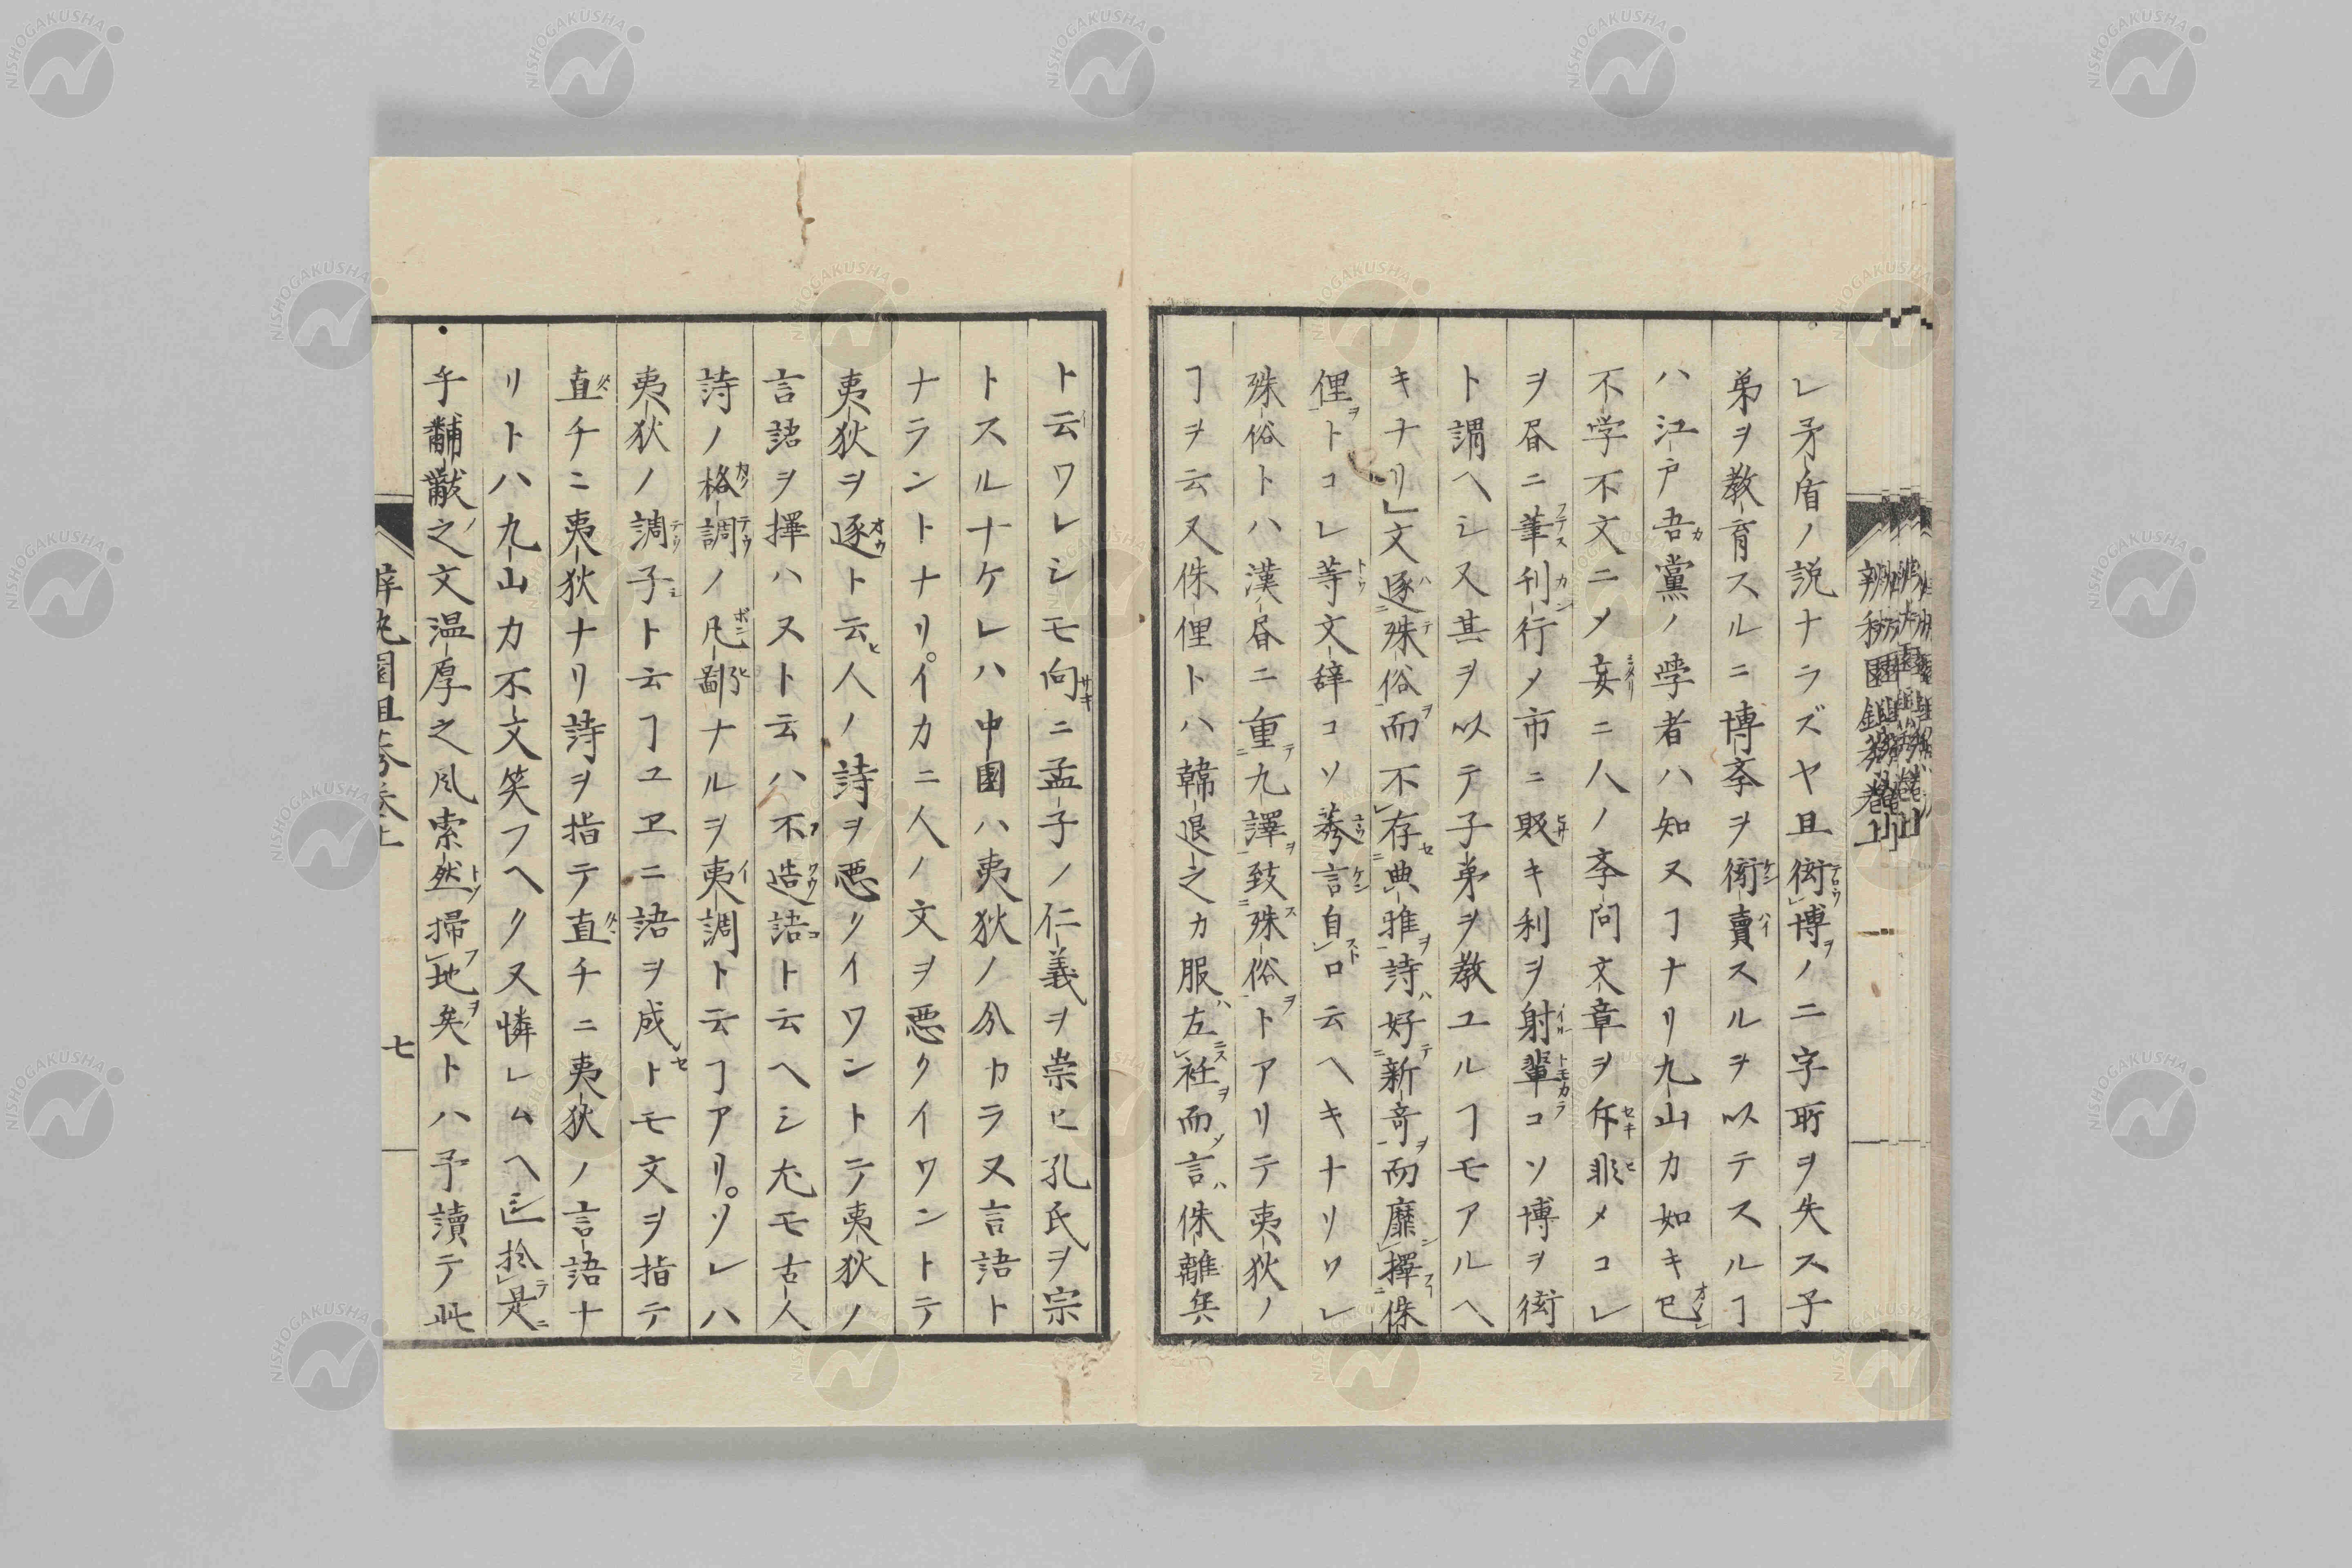 レ矛盾ノ説ナラズヤ且衒博ノ二字所ヲ失ス子
弟ヲ教育スルニ博斈ヲ衒賣スルヲ以テスルヿ
ハ江戸吾黨ノ學者ハ知ヌヿナリ九山カ如キ己
不学不文ニメ妄ニ人ノ斈問文章ヲ斥非メコレ
ヲ昼ニ筆刊行メ市ニ販キ利ヲ射輩コソ博ヲ衒
ト謂ヘシ又其ヲ以テ子弟ヲ教ユルヿモアルヘ
キナリ文逐殊俗而不存典雅詩好新竒而靡擇侏
俚トコレ等文辞コソ莠言自口云ヘキナリワレ
殊俗トハ漢昼ニ重九譯致殊俗トアリテ夷狄ノ
ヿヲ云又侏俚トハ韓退之カ服左衽而言侏離矣
ト云ワレシモ向ニ孟子ノ仁義ヲ崇ヒ孔氏ヲ宗
トスル十ケレハ中國ハ夷狄ノ分カラヌ言語ト
ナラントナリ。イカニ人ノ文ヲ悪クイワントテ
夷狄ヲ逐ト云人ノ詩ヲ悪リイワントテ夷狄ノ
言語ヲ擇ハヌト云ハ不造語ト云ヘシ尤モ古人
詩ノ格調ノ凡鄙ナルヲ夷調ト云ヿアリ。ソレハ
夷狄ノ調子ト云ヿユヱニ語ヲ成トモ文ヲ指テ
直チニ夷狄ナリ詩ヲ指テ直チニ夷狄ノ言語ナ
リトハ九山カ不文笑フヘク又憐レムヘシ
乎黼黻之文温厚之風索然掃地矣トハ予讀テ此
七